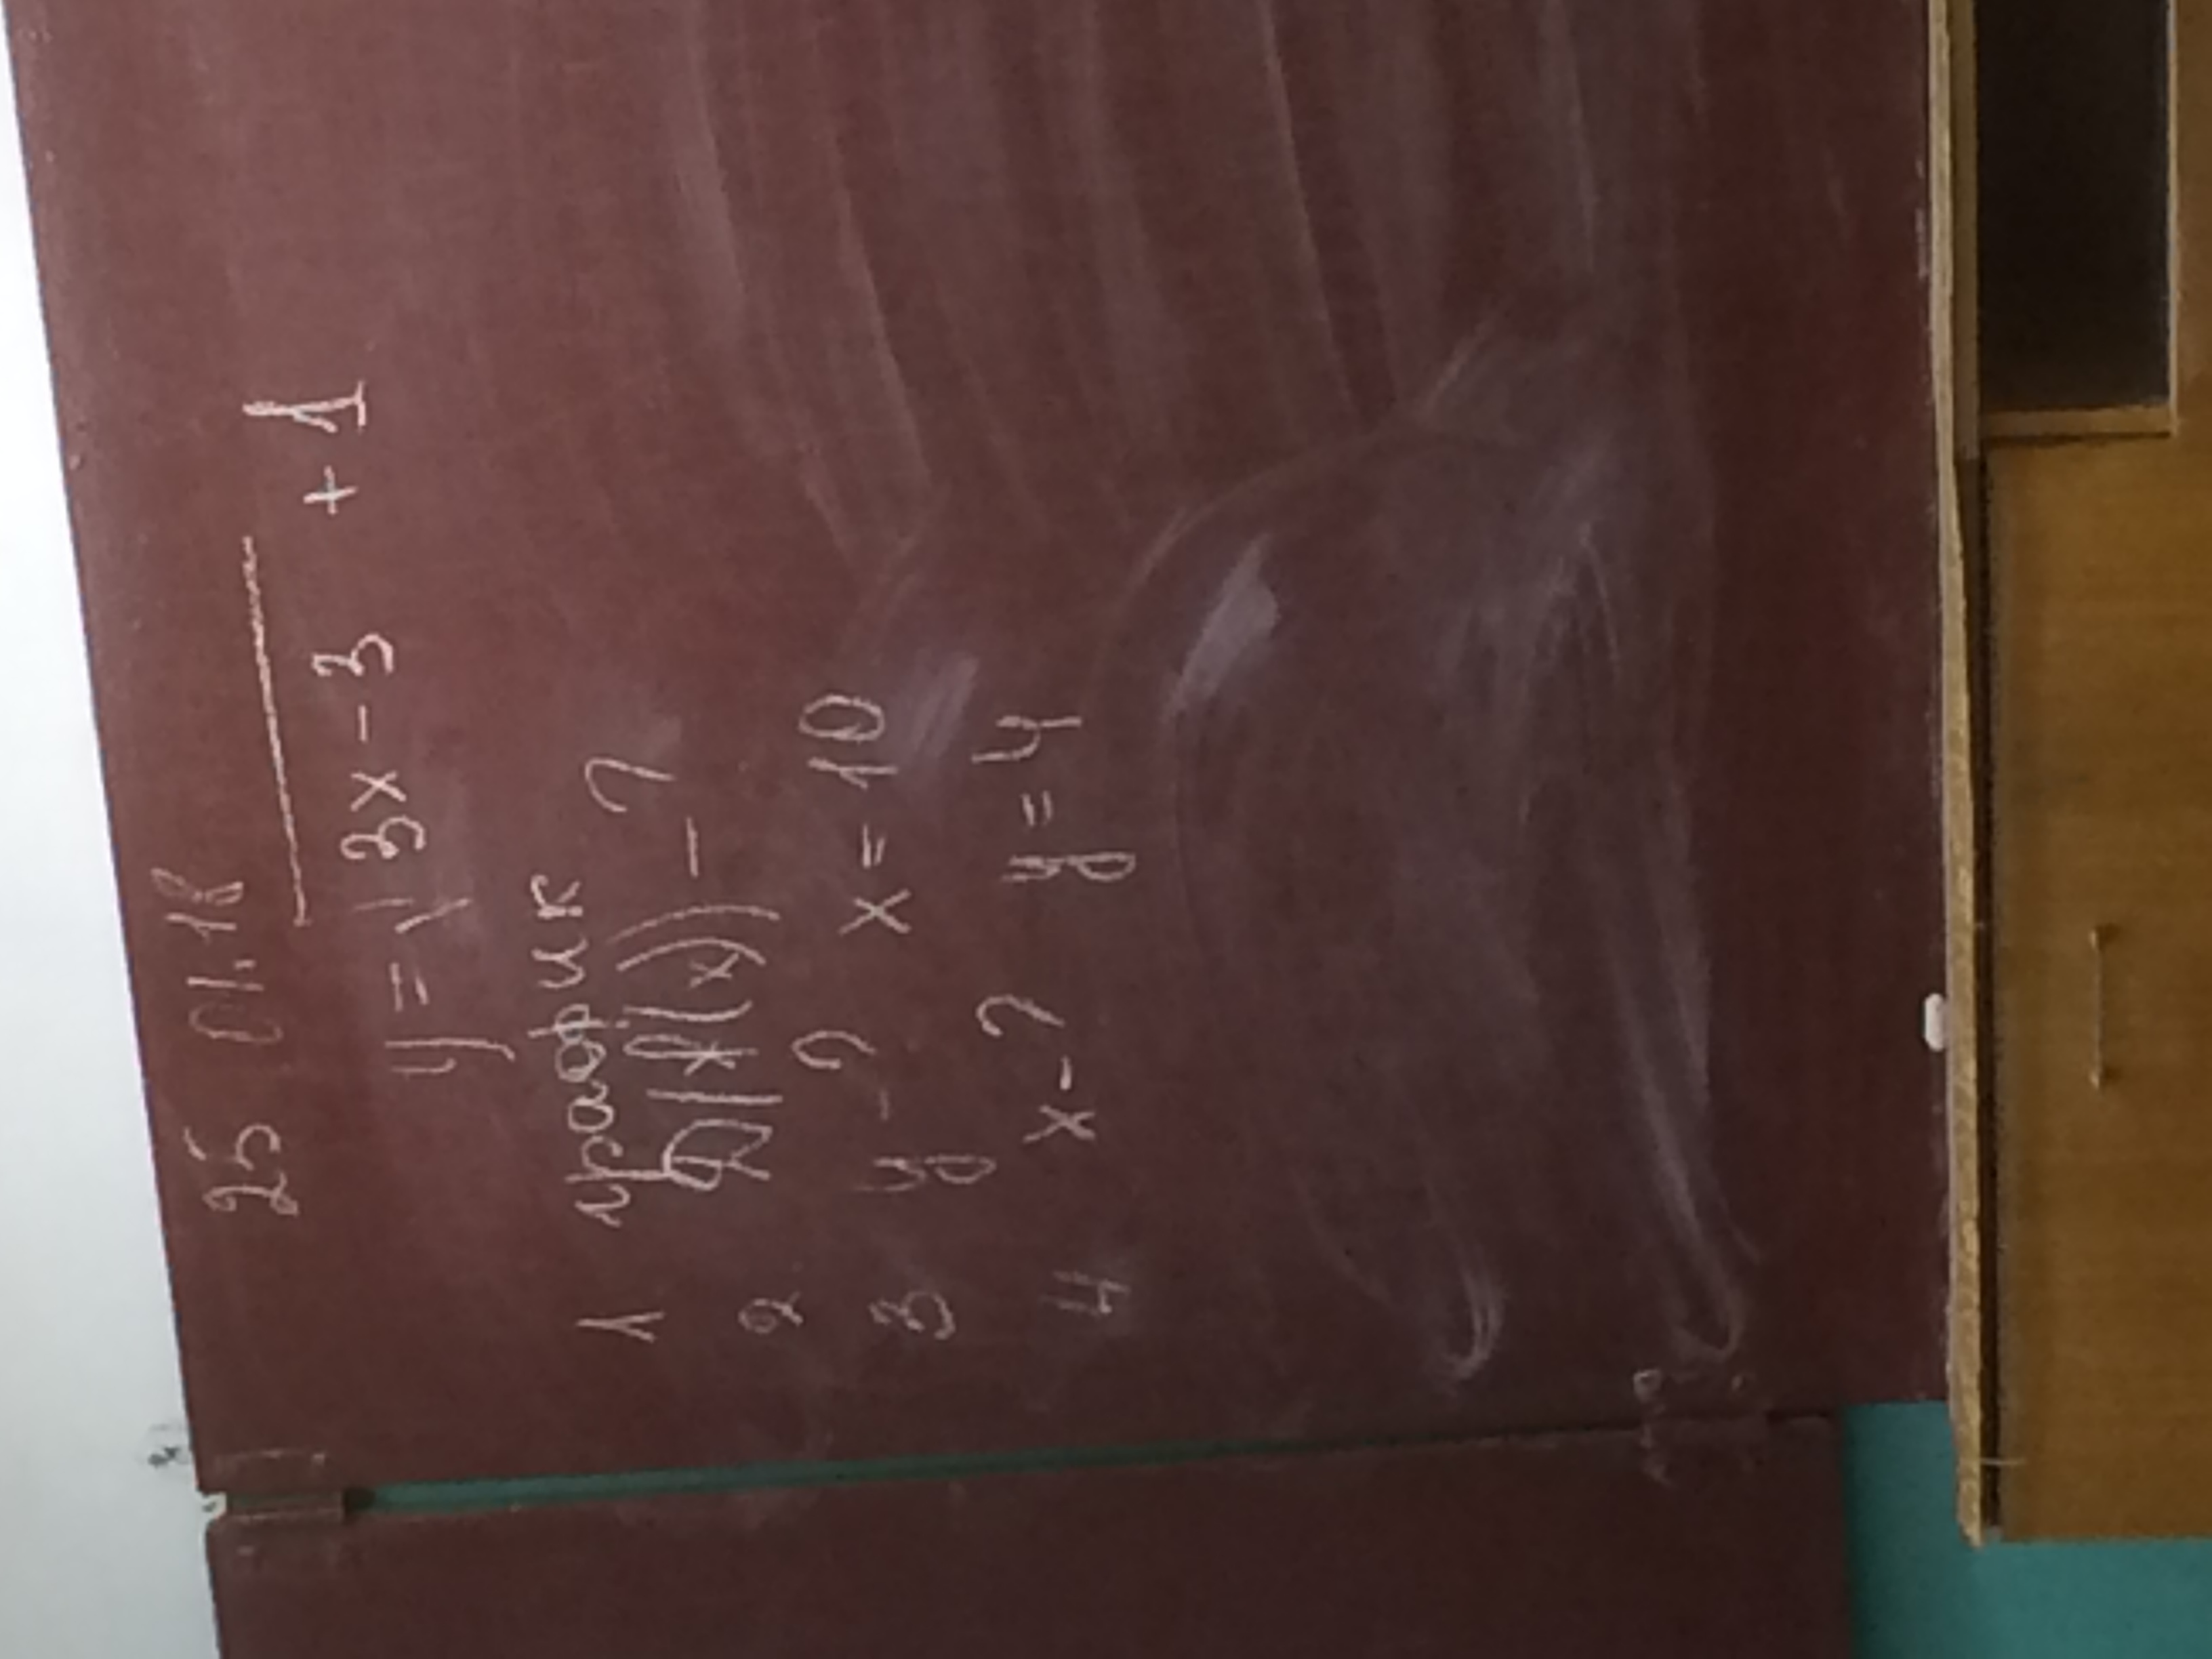 25 01.18
y = √3x - 3 + 1
1 график
2 D(f(x)) - ?
3 y - ? x = 10
4 x - ? y = 4